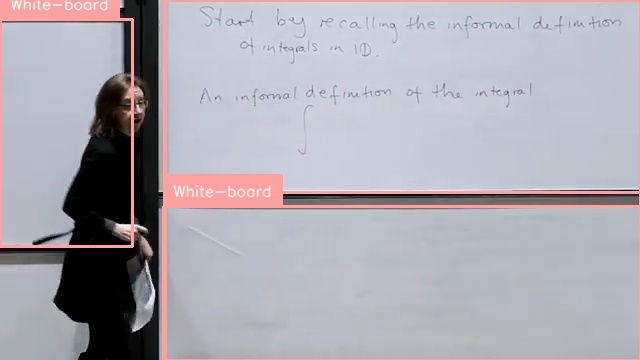 White-board
Start by recalling the informal definition
of integrals in 1D.
An informal definition of the integral
∫
White-board